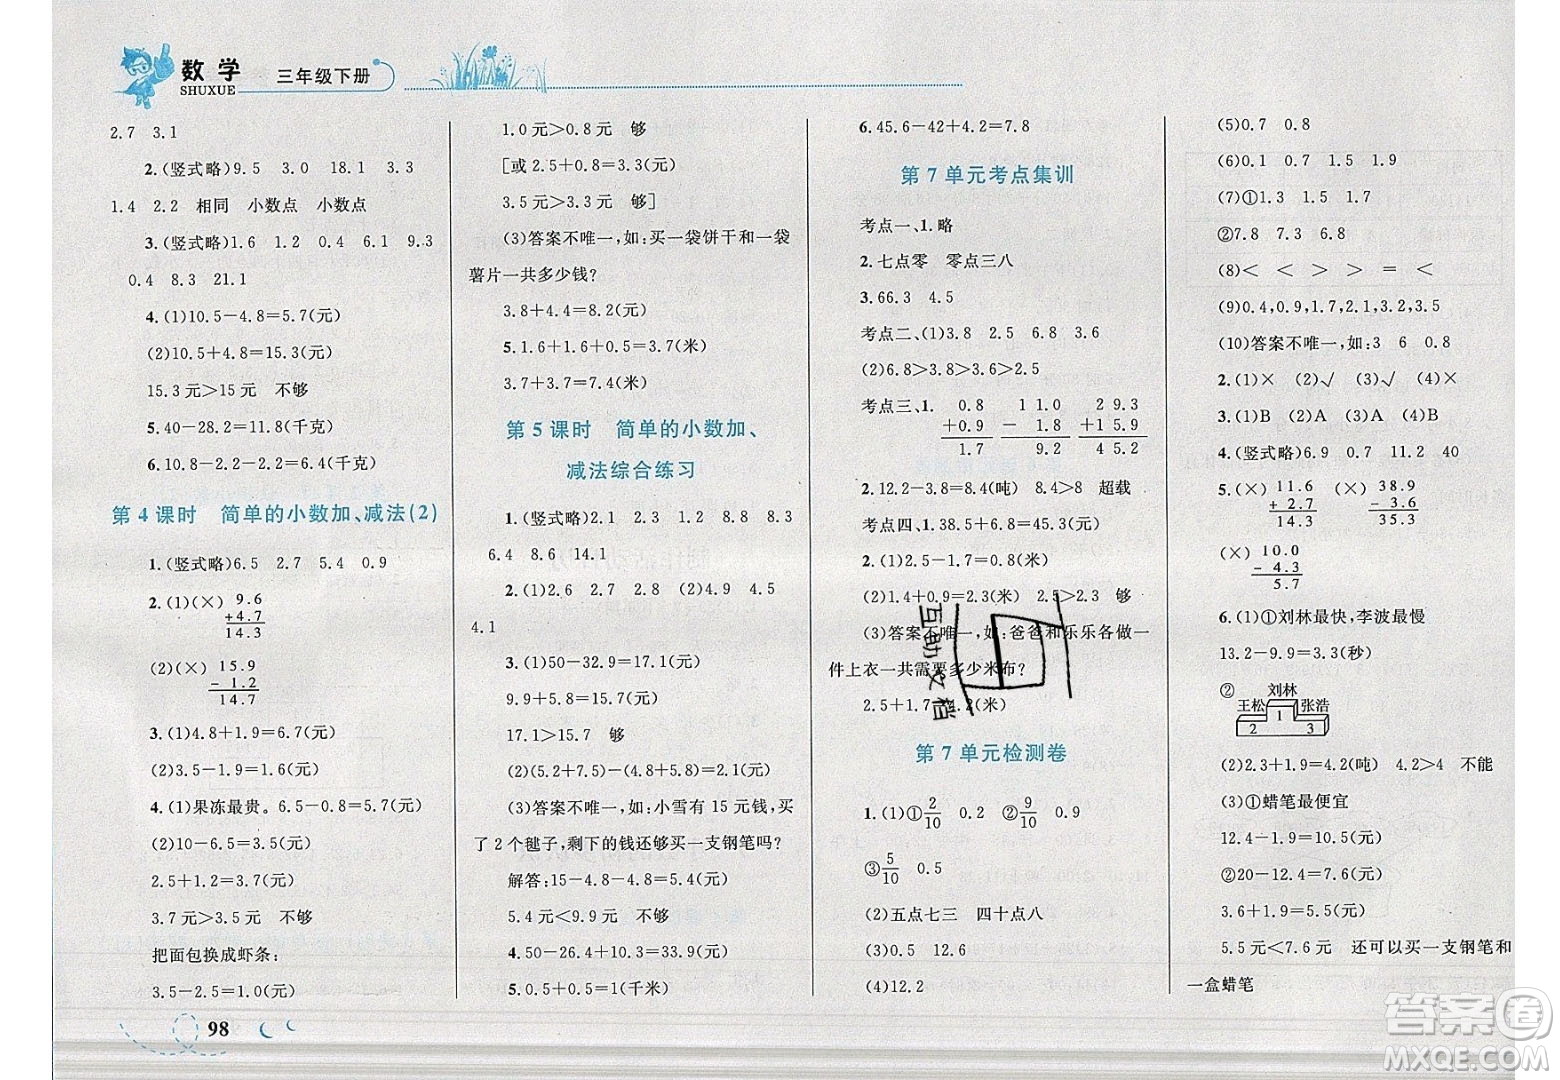 数学
SHUXUE
三年级下册
2.7 3.1
2.(竖式略)9.5 3.0 18.1 3.3
1.4 2.2 相同 小数点 小数点
3.(竖式略)1.6 1.2 0.4 6.1 9.3
0.4 8.3 21.1
4.(1)10.5-4.8=5.7(元)
(2)10.5+4.8=15.3(元)
15.3元>15元 不够
5.40-28.2=11.8(千克)
6.10.8-2.2-2.2=6.4(千克)
第4课时 简单的小数加、减法(2)
1.(竖式略)6.5 2.7 5.4 0.9
2.(1)(×) 9.6
+4.7
14.3
(2)(×) 15.9
- 1.2
14.7
3.(1)4.8+1.9=6.7(元)
(2)3.5-1.9=1.6(元)
4.(1)果冻最贵。6.5-0.8=5.7(元)
(2)10-6.5=3.5(元)
2.5+1.2=3.7(元)
3.7元>3.5元 不够
把面包换成虾条:
3.5-2.5=1.0(元)
98
1.0元>0.8元 够
[或2.5+0.8=3.3(元)
3.5元>3.3元 够]
(3)答案不唯一,如:买一袋饼干和一袋
薯片一共多少钱?
3.8+4.4=8.2(元)
5.1.6+1.6+0.5=3.7(米)
3.7+3.7=7.4(米)
第5课时 简单的小数加、
减法综合练习
1.(竖式略)2.1 2.3 1.2 8.8 8.3
6.4 8.6 14.1
2.(1)2.6 2.7 2.8 (2)4.9 4.5
4.1
3.(1)50-32.9=17.1(元)
9.9+5.8=15.7(元)
17.1>15.7 够
(2)(5.2+7.5)-(4.8+5.2)=2.7(元)
(3)答案不唯一,如:小雪有15元钱,买
了2个毽子,剩下的钱还够买一支钢笔吗?
解答:15-4.8-4.8=5.4(元)
5.4元<9.9元 不够
4.50-26.4+10.3=33.9(元)
5.0.5+0.5=1(千米)
6.45.6-42+4.2=7.8
第7单元考点集训
考点一、1.略
2.七点零 零点三八
3.66.3 4.5
考点二、(1)3.8 2.5 6.8 3.6
(2)6.8>3.8>3.6>2.5
考点三、1. 0.8 11.0 29.3
+0.9 - 1.8 +15.9
1.7 9.2 45.2
2.12.2-3.8=8.4(吨) 8.4>8 超载
考点四、1.38.5+6.8=45.3(元)
2.(1)2.5-1.7=0.8(米)
(2)1.4+0.9=2.3(米) 2.5>2.3 够
(3)答案不唯一,如:爸爸和乐乐各做一
件上衣一共需要多少米布?
2.5+1.7=4.2(米)
互助文档
第7单元检测卷
1.(1)①2/10 0.2 ②9/10 0.9
③5/10 0.5
(2)五点七三 四十点八
(3)0.5 12.6
(4)12.2
(5)0.7 0.8
(6)0.1 0.7 1.5 1.9
(7)①1.3 1.5 1.7
②7.8 7.3 6.8
(8)< < > = <
(9)0.4,0.9,1.7,2.1,3.2,4.3
(10)答案不唯一,如:3 6 0.8
2.(1)× (2)√ (3)√ (4)×
3.(1)B (2)A (3)B (4)A
4.(竖式略)6.9 0.9 11.2 40
5.(×) 11.6 (×) 38.9
+ 2.7 - 3.6
14.3 35.3
(×) 10.0
- 4.3
5.7
6.(1)①刘林最快,李波最慢
13.2-9.9=3.3(秒)
② 刘林
王松 张浩
2 1 3
(2)2.3+1.9=4.2(吨) 4.2>4 不能
(3)①蜡笔最便宜
12.4-1.9=10.5(元)
②20-12.4=7.6(元)
3.6+1.9=5.5(元)
5.5元<7.6元 还可以买一支钢笔和
一盒蜡笔
答案圈
MXQE.COM